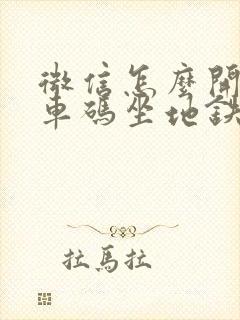 微信怎麼開
車碼坐地鉄
拉馬拉